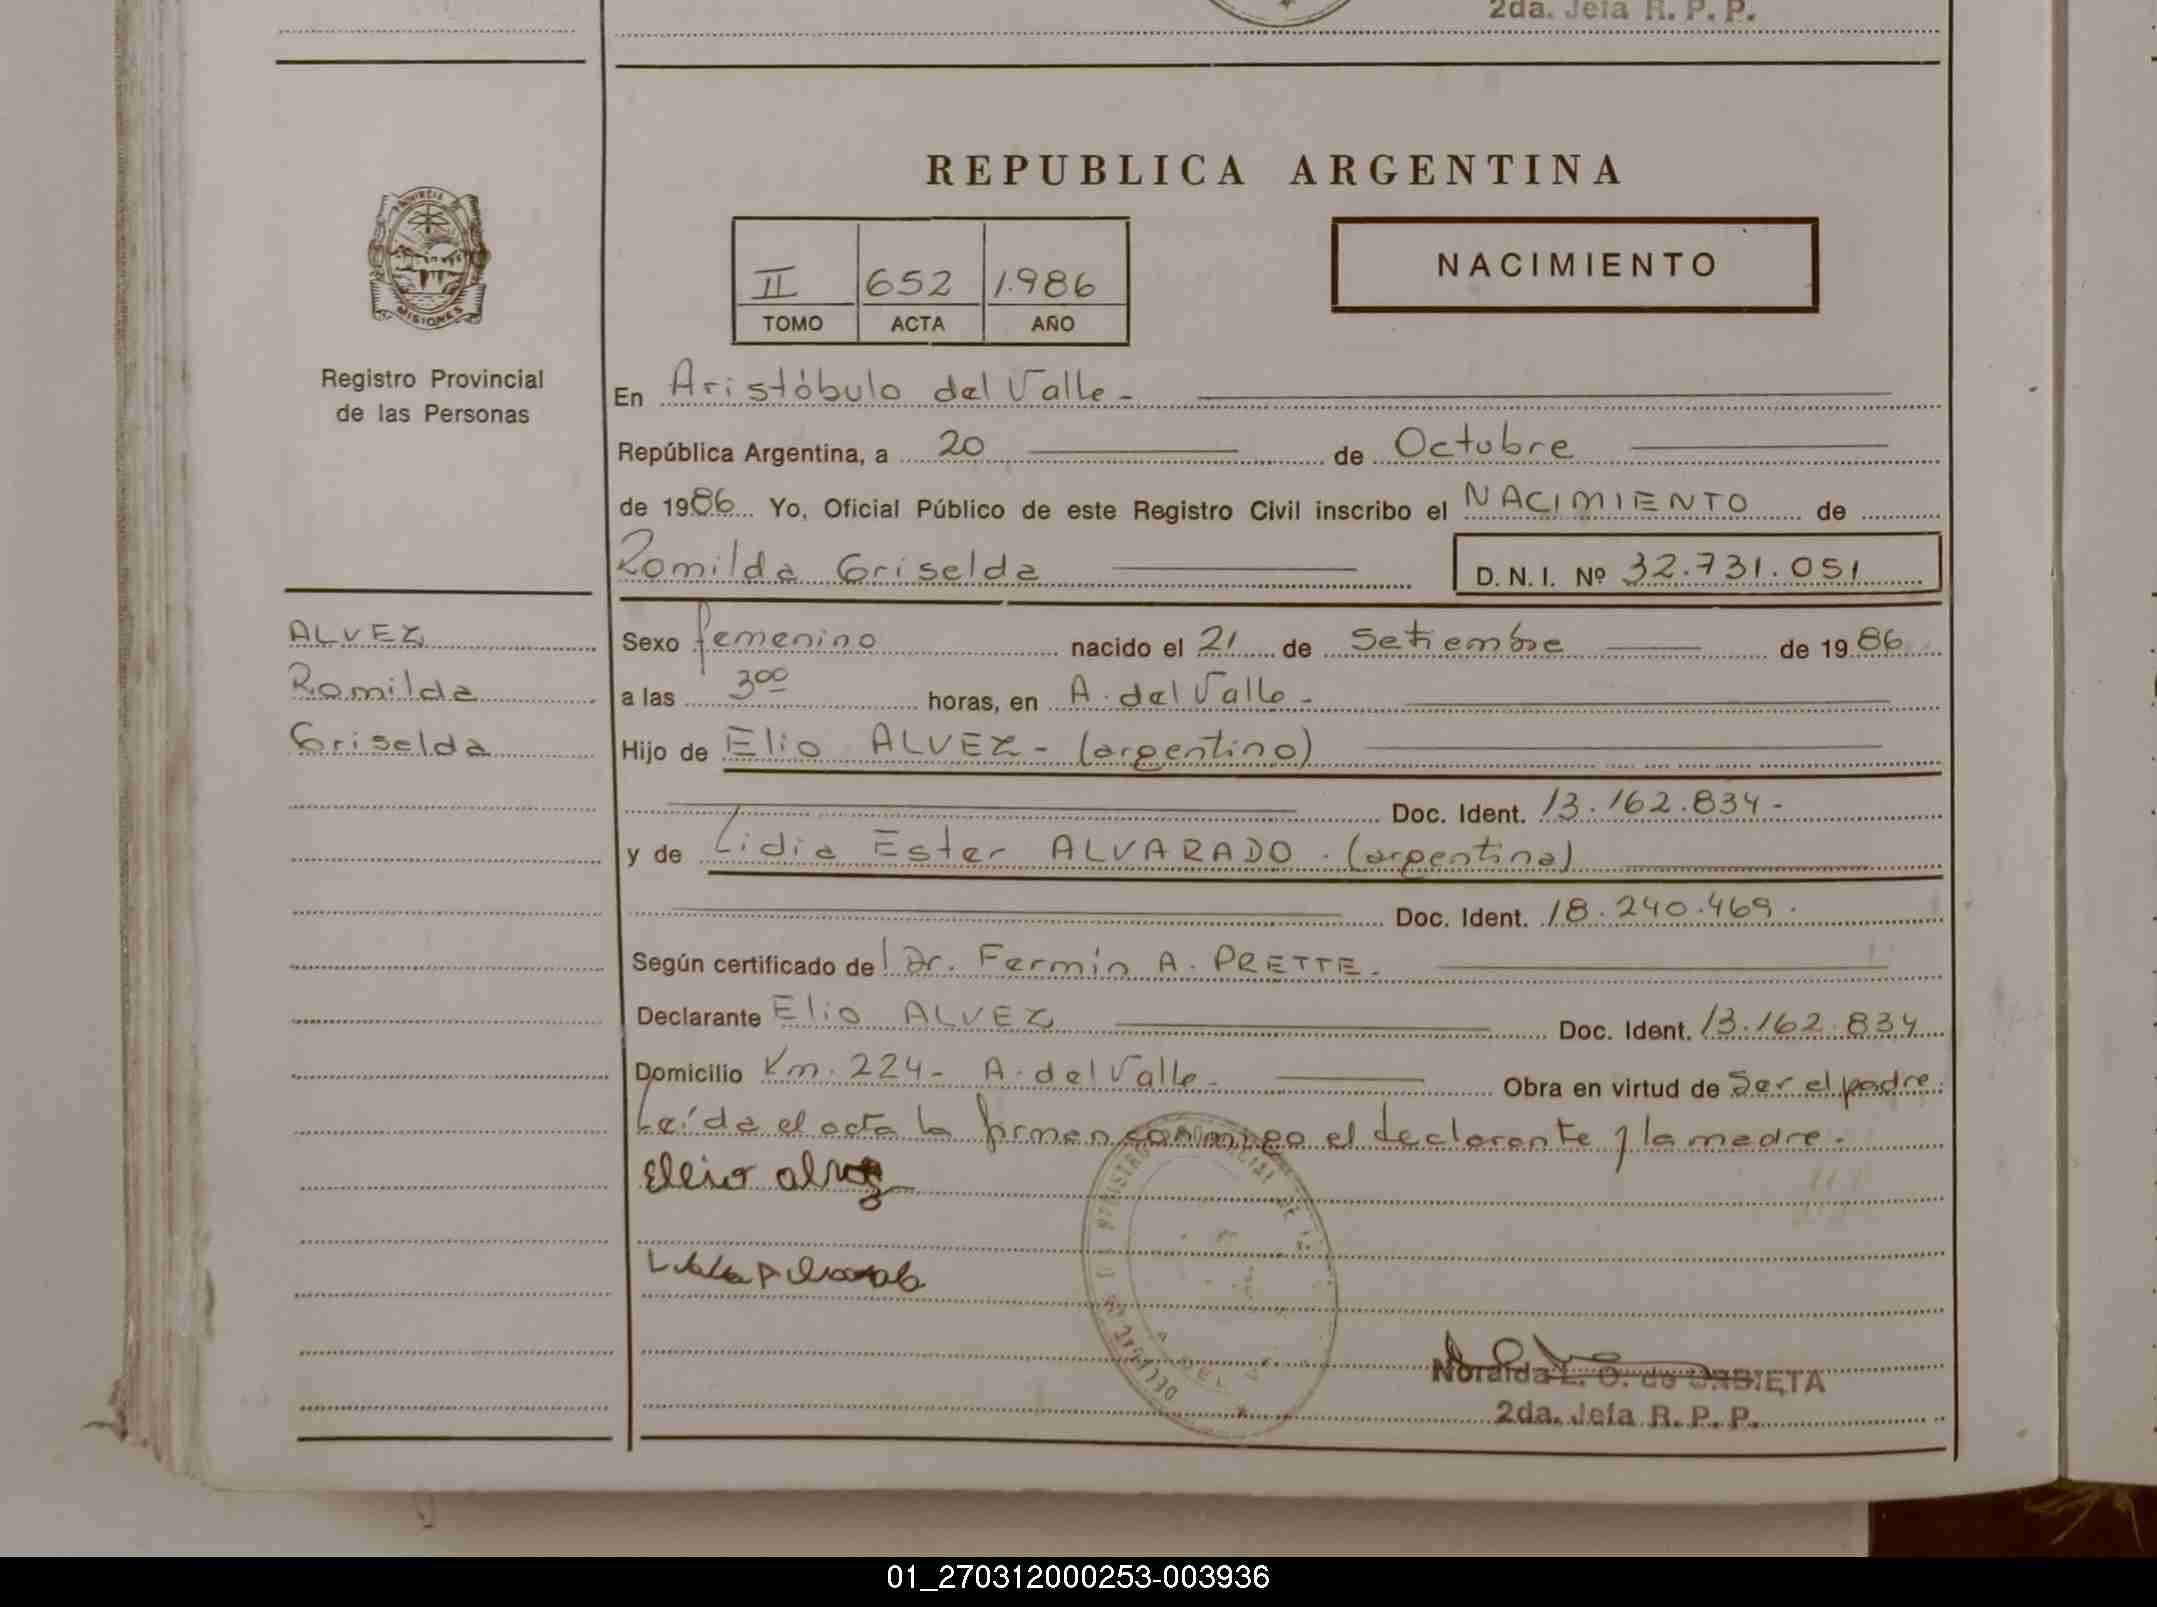 2da. Jefa R. P. P.
REPUBLICA ARGENTINA
PROVINCIA
MISIONES
Registro Provincial
de las Personas
II 652 1.986
TOMO ACTA AÑO
NACIMIENTO
En Aristóbulo del Valle -
República Argentina, a 20 de Octubre
de 1986 Yo, Oficial Público de este Registro Civil inscribo el NACIMIENTO de
Romilda Griselda D. N. I. Nº 32.731.051
ALVEZ
Romilda
Griselda
Sexo femenino nacido el 21 de Setiembre de 1986
a las 3⁰⁰ horas, en A. del Valle -
Hijo de Elio ALVEZ - (argentino)
Doc. Ident. 13.162.834 -
y de Lidia Ester ALVARADO . (argentina)
Doc. Ident. 18.240.469 .
Según certificado del Dr. Fermín A. PRETTE .
Declarante Elio ALVEZ Doc. Ident. 13.162.834
Domicilio Km. 224 - A. del Valle - Obra en virtud de ser el padre
Leída el acta la firman conmigo el declarante y la madre .
Eleio alvez
Noraida L. O. de URBIETA
2da. Jefa R. P. P.
01_270312000253-003936